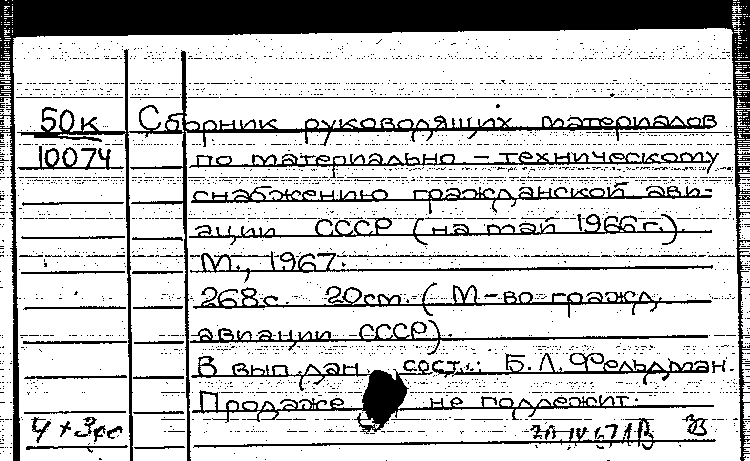 50к Сборник руководящих материалов
10074 по материально-техническому
снабжению гражданской ави-
ации СССР (на май 1966г.).
М., 1967.
268с. 20см. (М-во гражд.
авиации СССР).
В вып. дан. сост.: Б.Л. Фельдман.
Продаже не подлежит.